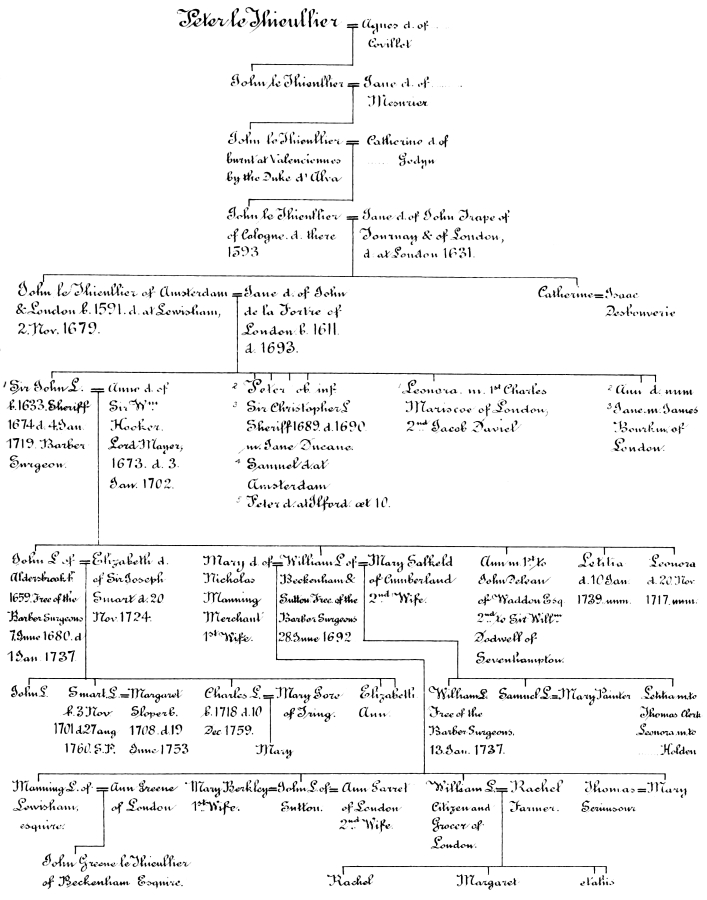 Peter le Thieullier = Agnes d. of ....
Covillet
John le Thieullier = Jane d. of ......
Mesurier
John le Thieullier
burnt at Valenciennes
by the Duke d' Alva
= Catherine d of
..... Godyn
John le Thieullier
of Cologne. d. there
1593
= Jane d. of John Frape of
Tournay & of London,
d. at London 1631.
John le Thieullier of Amsterdam
& London b. 1591. d. at Lewisham,
2. Nov. 1679.
= Jane d. of John
de la Fortre of
London b. 1611.
d. 1693.
Catherine = Isaac
Desbouverie
1 Sir John L.
b. 1633. Sheriff
1674 d. 4. Jan.
1719. Barber
Surgeon.
= Anne d. of
Sir Wm
Hooker.
Lord Mayer,
1673. d. 3.
Jan. 1702.
2 Peter ob inf
3 Sir Christopher L
Sheriff 1689. d. 1690
m. Jane Ducane.
4 Samuel d. at
Amsterdam
5 Peter d. at Ilford. æt 10.
1 Leonora. m. 1st Charles
Mariscoe of London,
2nd Jacob Daviel
2 Ann d. num
3 Jane. m. James
Bourk.m. of
London.
John L. of
Aldersbrook b
1659. Free of the
Barber Surgeons
7. June 1680. d
1 Jan. 1737.
= Elizabeth d.
of Sir Joseph
Smart d. 20
Nov 1724.
Mary d. of
Nicholas
Manning
Merchant
1st Wife.
= William L. of
Beckenham &
Sutton Free of the
Barbor Surgeons
28 June 1692
= Mary Salkeld
of Cumberland
2nd Wife.
Ann m. 1st to
John Delvau
of Waddon Esq
2nd to Sir Willm
Dodwell of
Sevenhampton.
Letitia
d. 10 Jan.
1739. unm.
Leonora
d. 20. Nov
1717. unm.
John L.
Smart L.
b. 3 Nov
1701 d 27 aug
1760. S.P.
= Margaret
Sloper b.
1708. d. 19
June 1753
Charles L.
b. 1718 d. 10
Dec 1759.
= Mary Gore
of Tring.
Mary
Elizabeth
Ann.
William L.
Free of the
Barber Surgeons.
13. Jan. 1737.
Samuel L. = Mary Painter
Letitia m. to
Thomas Clerk
Leonora m. to
Holden
Manning L. of
Lowisham,
esquire.
= Ann Greene
of London
Mary Berkley
1st Wife.
= John L. of
Sutton.
= Ann Garret
of London
2nd Wife.
William L.
Citizen and
Grocer of
London.
= Rachel
Farmer.
Thomas
Scrimsour
= Mary
John Greene le Thieullier
of Beckenham Esquire.
Rachel Margaret